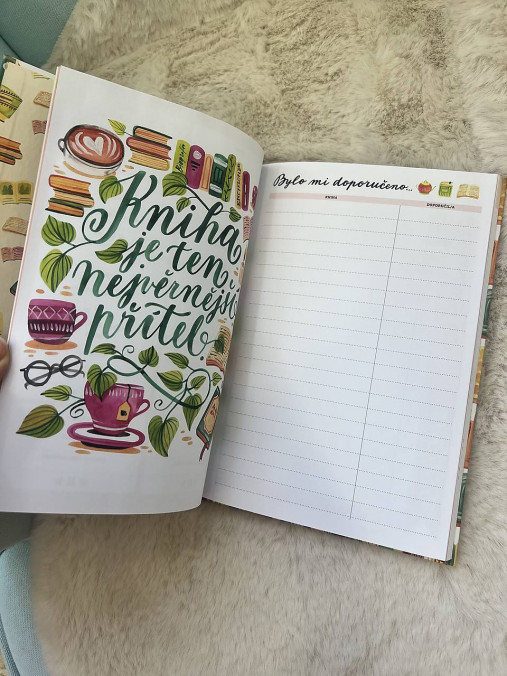 Kniha
je ten
nejvěrnější
přítel
Bylo mi doporučeno...
KNIHA
DOPORUČIL/A